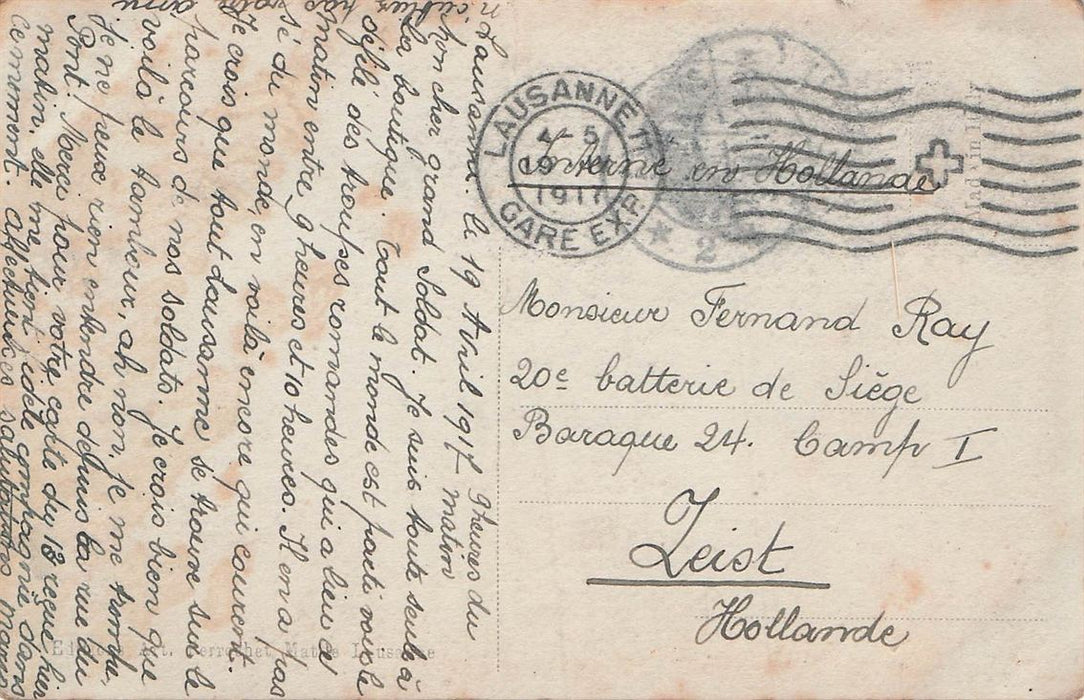 Lausanne le 19 Avril 1917 9 heures du
matin
Mon cher grand Soldat. Je suis toute seule à
la boutique. Tout le monde est parti voir le
défilé des troupes romandes qui a lieu ce
matin entre 9 heures et 10 heures. Il en a pas
sé du monde, en voilà encore qui courent.
Je crois que tout Lausanne se trouve sur le
parcours de nos soldats. Je crois bien que
voilà le tambour, ah non, je me trompe,
je ne peux rien entendre depuis la rue du
Pont. Merci pour votre carte du 13 reçue hier
matin. elle me tient
affectueuses salutations
LAUSANNE
GARE EXP.
1917
2
Interné en Hollande
Made in Italy
Monsieur Fernand Ray
20e batterie de Siège
Baraque 24. Camp I
Zeist
Hollande
Editions Art. Perrochet Matile Lausanne